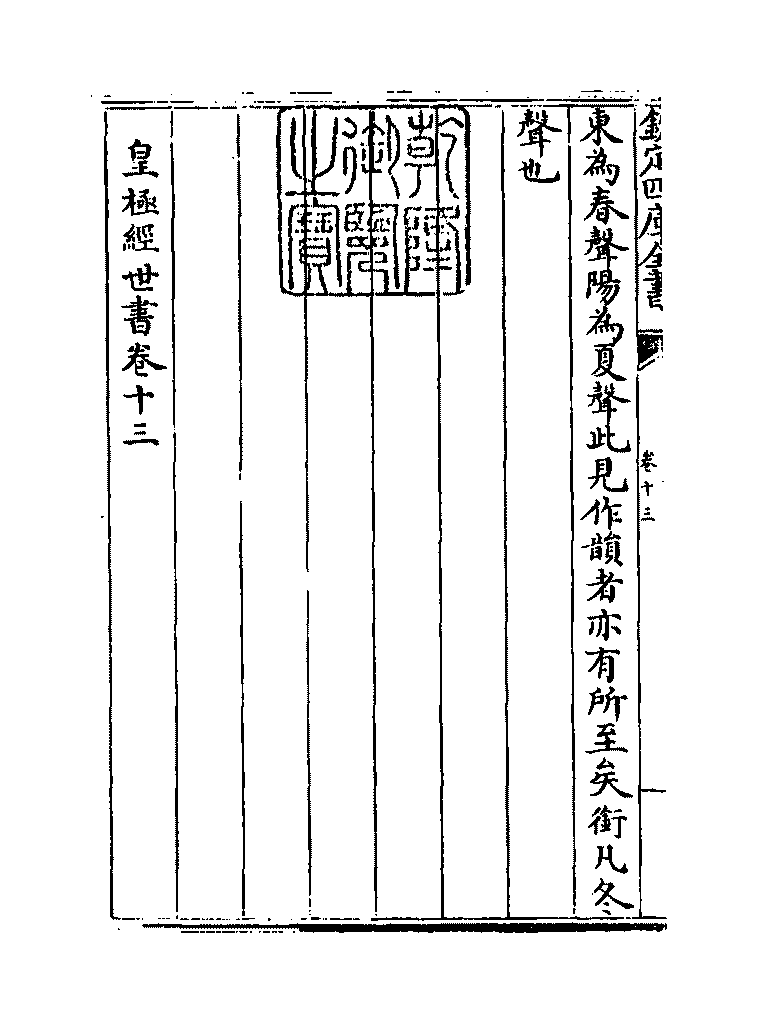 欽定四庫全書
卷十三
東為春聲陽為夏聲此見作韻者亦有所至矣銜凡冬
聲也
乾隆
御覽
之寶
皇極經世書卷十三